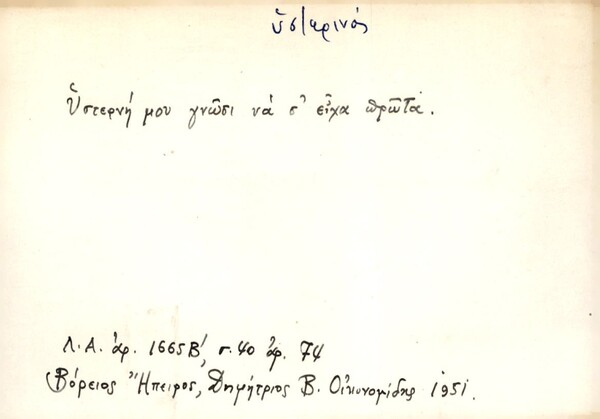 ὑστερινός
Ὑστερνή μου γνῶσι νά σ' εἶχα πρῶτα.
Λ.Α. ἀρ. 1665Β', σ. 40 ἀρ. 74
Βόρειος Ἤπειρος, Δημήτριος Β. Οἰκονομίδης 1951.